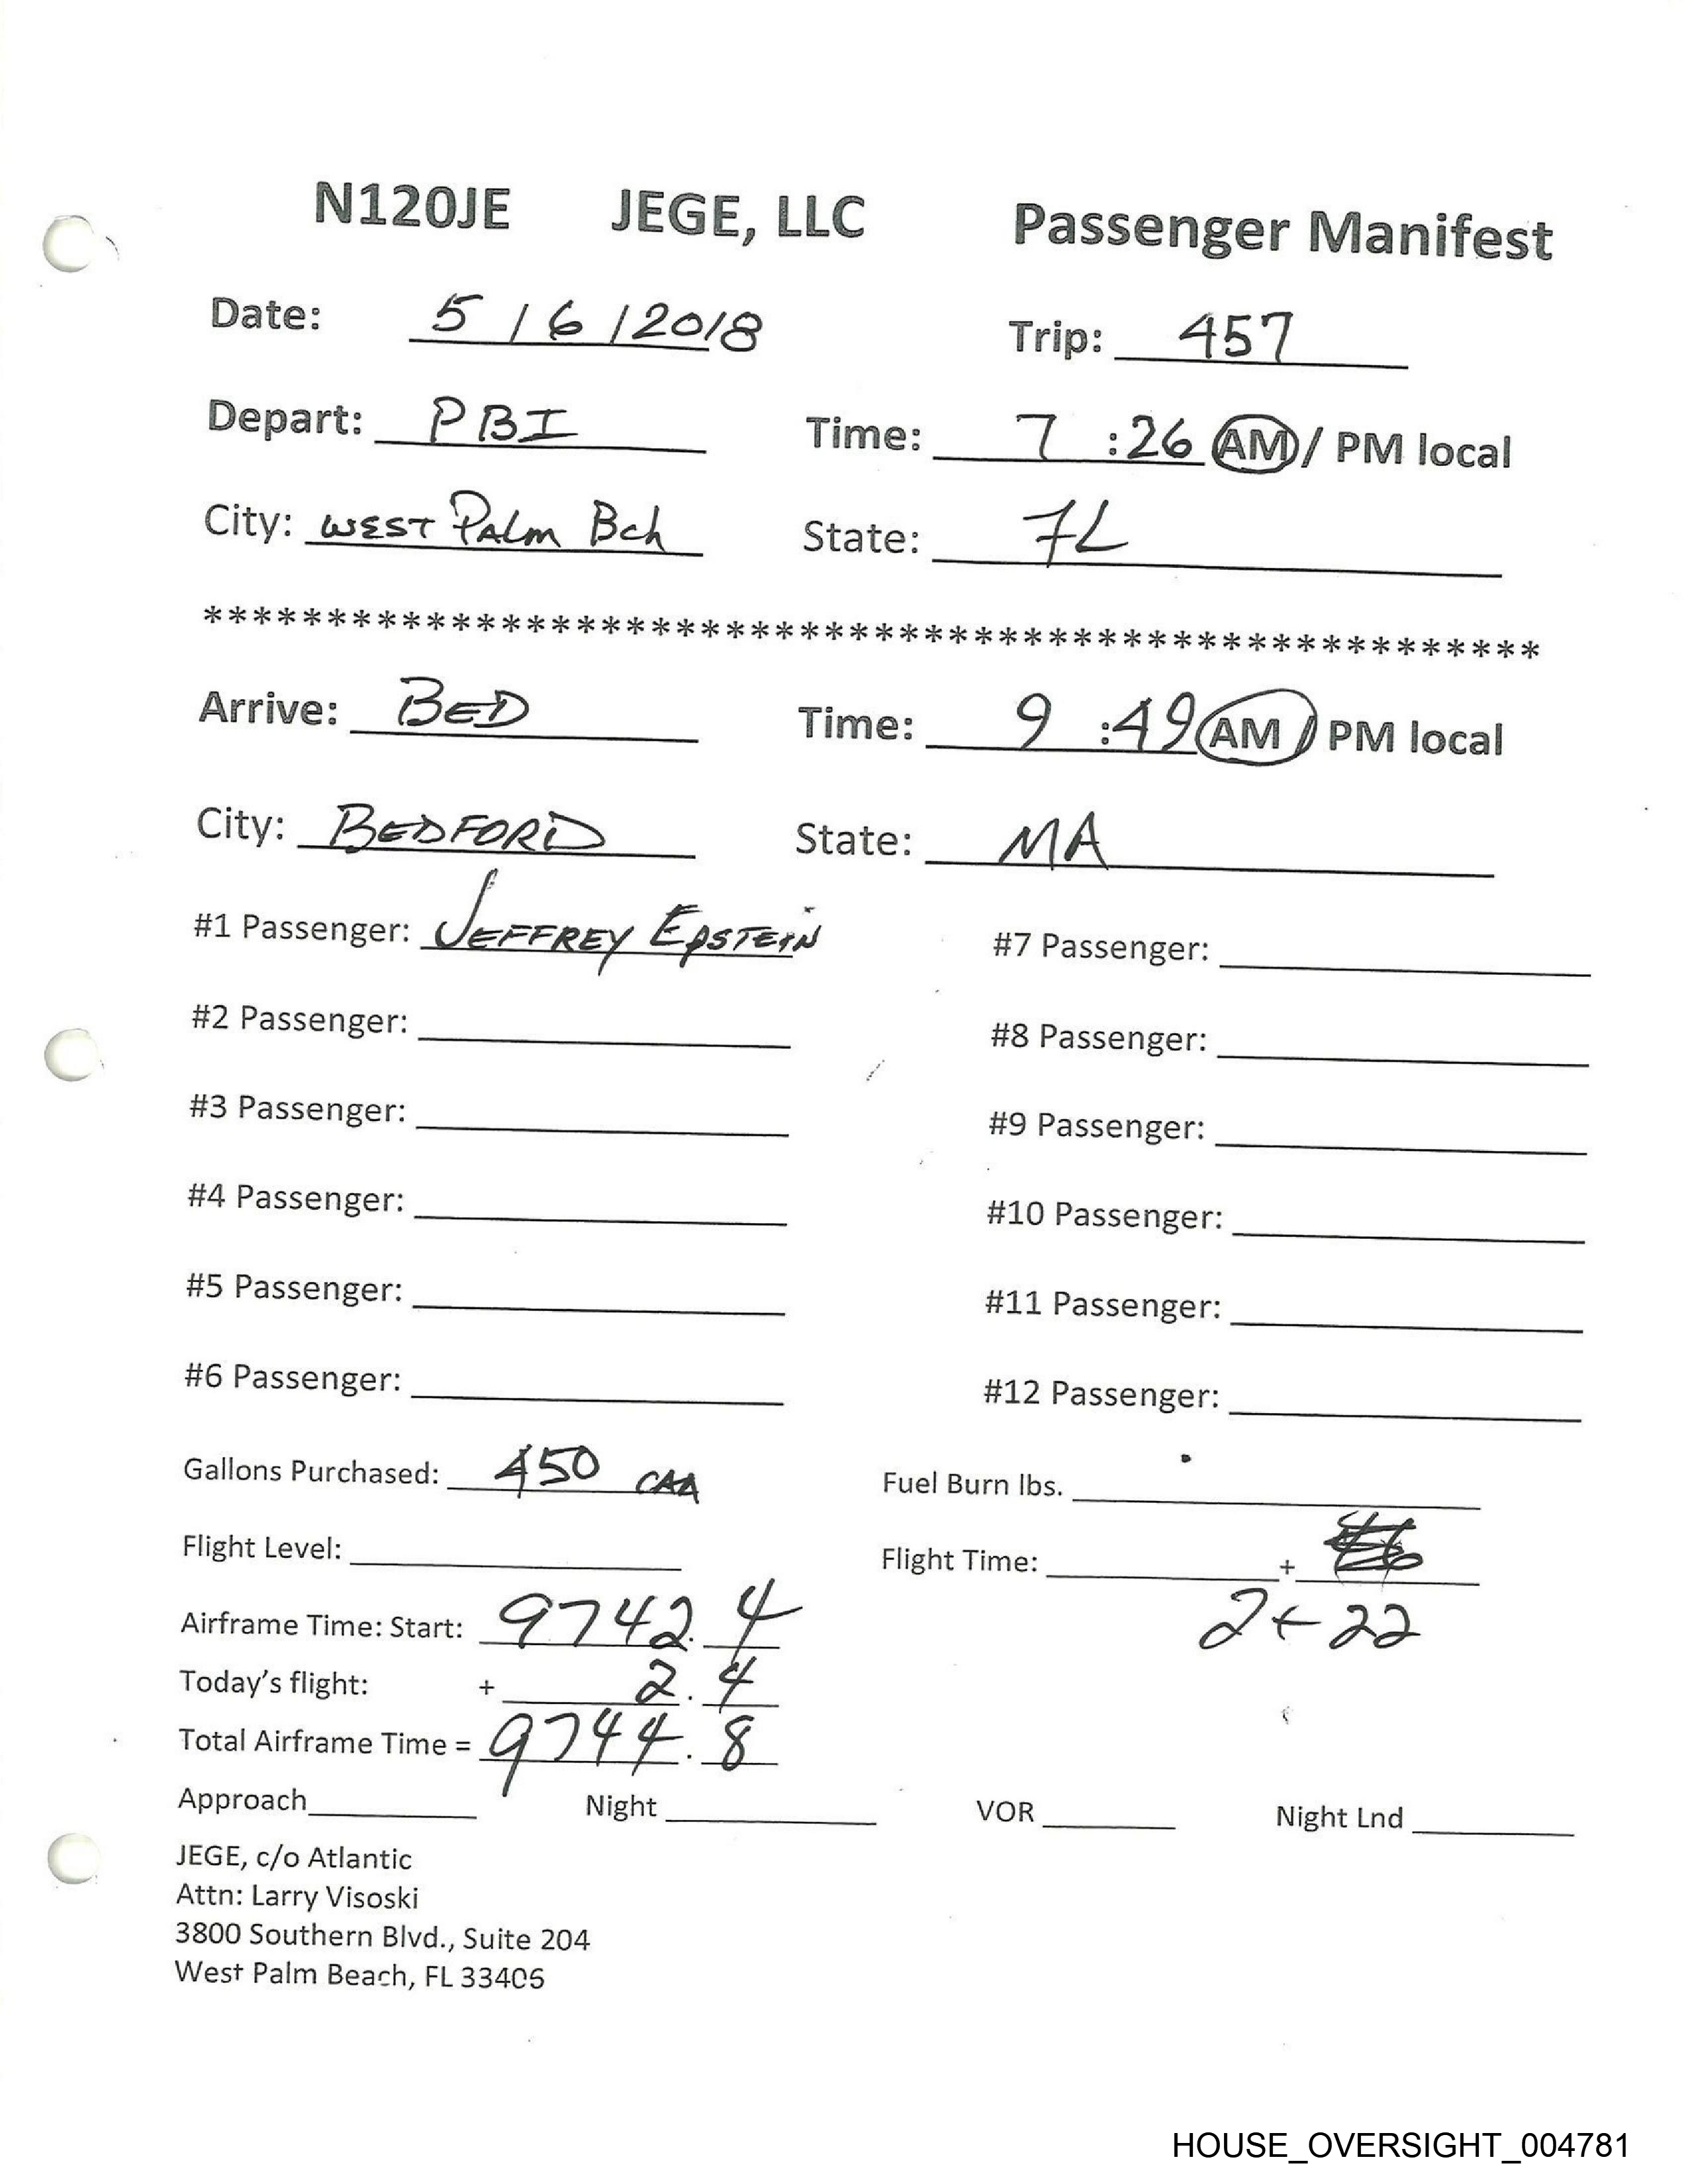 N120JE JEGE, LLC Passenger Manifest
Date: 5 / 6 / 2018 Trip: 457
Depart: PBI Time: 7 :26 AM / PM local
City: WEST PALM Bch State: FL
******************************************************
Arrive: BED Time: 9 :49 AM / PM local
City: BEDFORD State: MA
#1 Passenger: JEFFREY EPSTEIN #7 Passenger:
#2 Passenger: #8 Passenger:
#3 Passenger: #9 Passenger:
#4 Passenger: #10 Passenger:
#5 Passenger: #11 Passenger:
#6 Passenger: #12 Passenger:
Gallons Purchased: 450 CAA Fuel Burn lbs.
Flight Level: Flight Time: +
2+22
Airframe Time: Start: 9742.4
Today's flight: + 2.4
Total Airframe Time = 9744.8
Approach Night VOR Night Lnd
JEGE, c/o Atlantic
Attn: Larry Visoski
3800 Southern Blvd., Suite 204
West Palm Beach, FL 33406
HOUSE_OVERSIGHT_004781